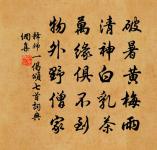 破暑黃梅雨
清神白乳茶
萬緣俱不到
物外野僧家
釋師一偈頌七首詞典
網集